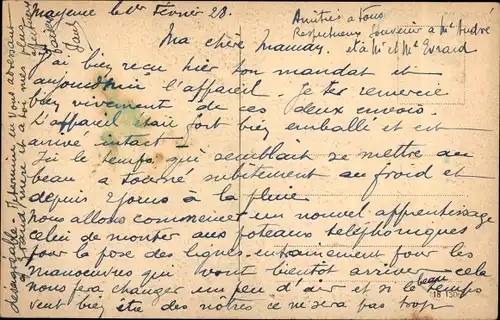 Mayence le 1er Février 28.
Amitiés à tous
Respectueux souvenir à Me André
et à Mr et Me Evrard
Ma chère Maman,
J'ai bien reçu hier ton mandat et
aujourd'hui l'appareil. Je te remercie
bien vivement de ces deux envois.
L'appareil était fort bien emballé et est
arrivé intact.
Ici le temps, qui semblait se mettre au
beau a tourné subitement au froid et
depuis 2 jours à la pluie
Nous allons commencer un nouvel apprentissage
celui de monter aux poteaux téléphoniques
pour la pose des lignes, entraînement pour les
manoeuvres qui vont bientôt arriver, cela
nous fera changer un peu d'air et si le beau temps
veut bien être des nôtres ce ne sera pas trop
désagréable. Je termine en vous adressant
à Grand'mère et à toi mes plus
baisers